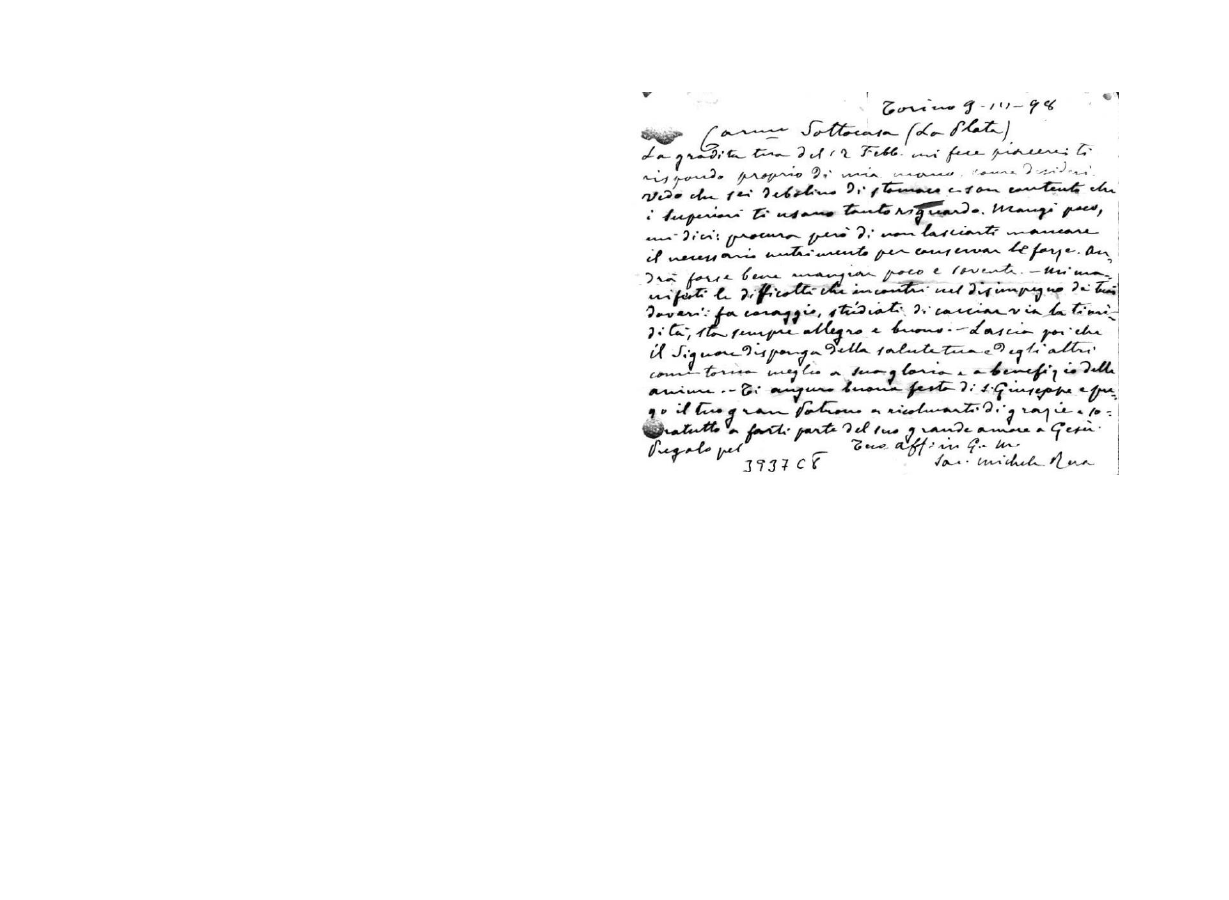 Torino 9-III-98
Car.mo Sottocasa (La Plata)
La gradita tua del 12 Febb. mi fece piacere: ti
rispondo proprio di mia mano, come desideri.
Vedo che sei debolino di stomaco e son contento che
i Superiori ti usano tanto riguardo. Mangi poco,
mi dici: procura però di non lasciarti mancare
il necessario nutrimento per conservar le forze. An,
drà forse bene mangiar poco e sovente. - Mi ma-
nifesti le difficoltà che incontri nel disimpegno de' tuoi
doveri: fa coraggio, stúdiati di cacciar via la timi-
dità, sta sempre allegro e buono. - Lascia poi che
il Signore disponga della salute tua e degli altri
come torna meglio a sua gloria e a benefizio delle
anime. - Ti auguro buona festa di S. Giuseppe e pre,
go il tuo gran Patrono a ricolmarti di grazie e so=
ratutto a farti parte del suo grande amore a Gesù.
Pregalo pel Tuo aff: in G. M.
3937 CB Sac. Michele Rua